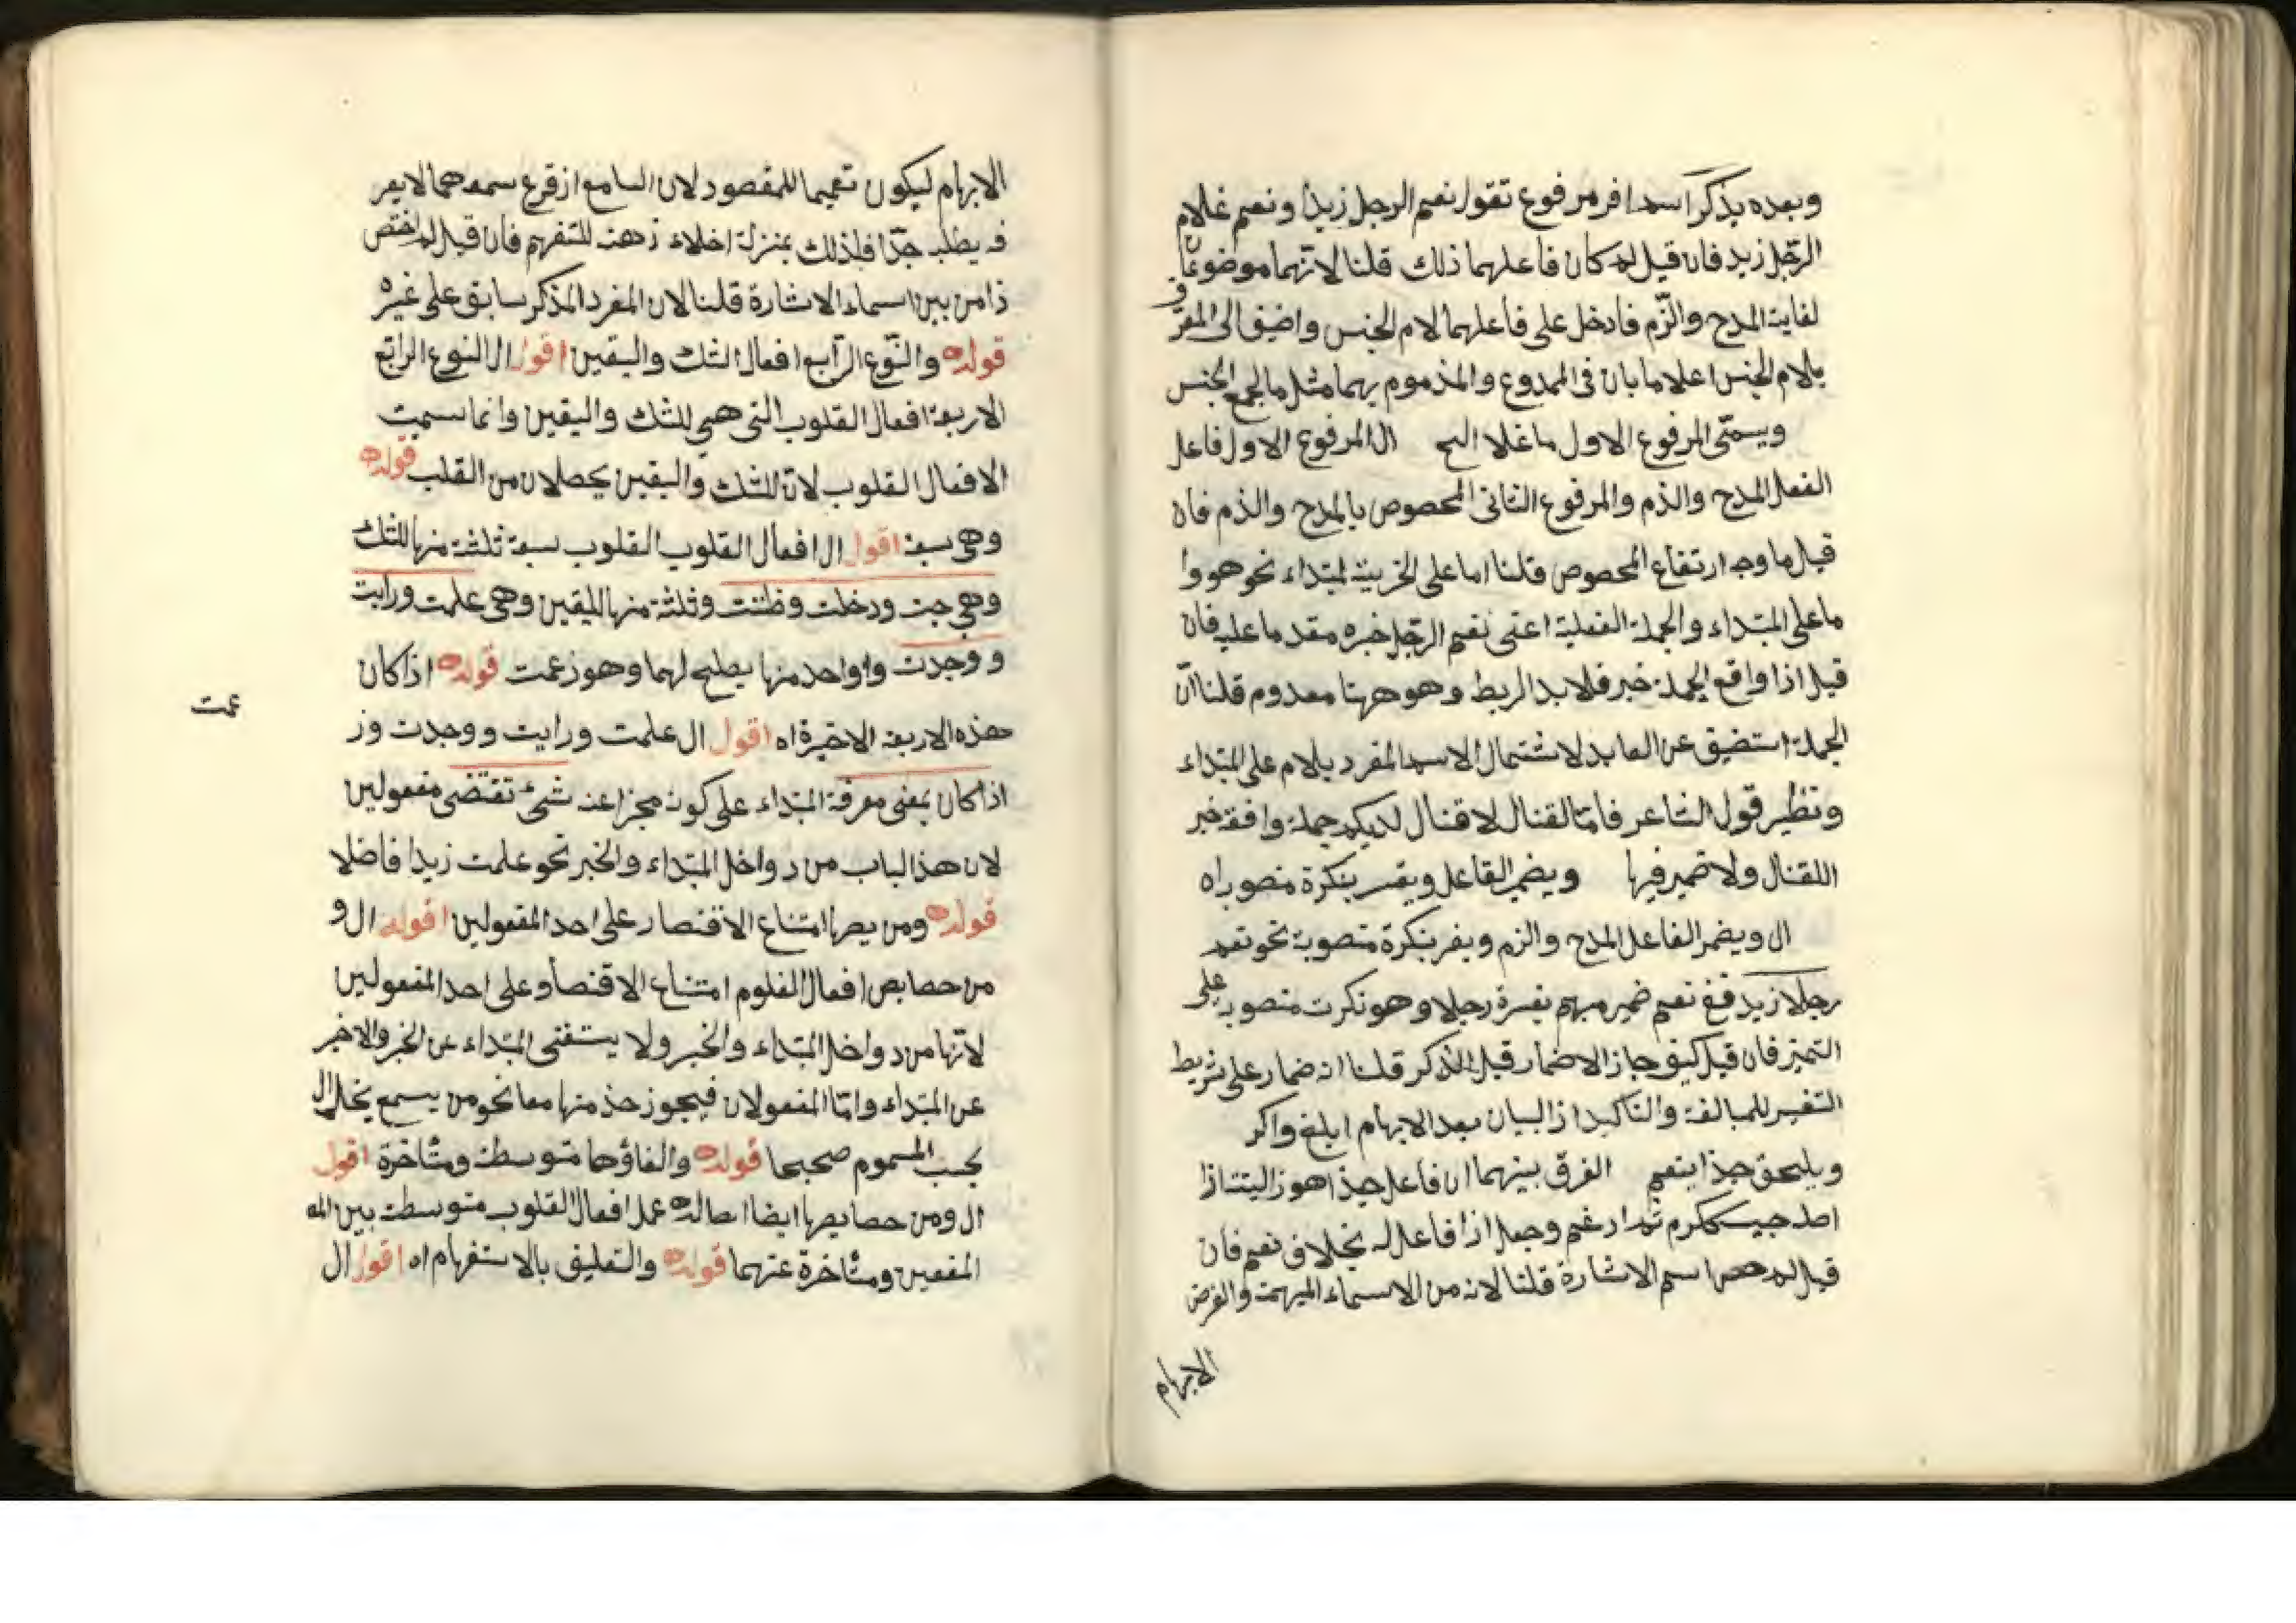 وبعده يذكر اسما افر مرفوع تقول نعم الرجل زيدا ونعم غلام
الرّجل زيد فان قيل لم كان فاعلهما ذلك قلنا لانّهما موضوعان
لغاية المدح والزّم فادخل على فاعلهما لام الجنس واضيف الى المعرّف
بلام الجنس اعلاما بان فى الممدوع والمذموم بهما مثل ما لجمع الجنس
ويسمّى المرفوع الاول ما غلا الح ال المرفوع الاول فاعل
الفعل المدح والذم والمرفوع الثانى المحصوص بالمدح والذم فان
قيل ما وجه ارتفاع المحصوص قلنا اما على الخربية لمبتداء نحو هو وا
ما على المبتداء والجملة الفعلية اعنى نعم الرّجل خبره مقدما عليه فان
قيل اذا واقع الجملة خبر فلابد الربط وهو ههنا معدوم قلنا انّ
الجملة استضيق عن العايد لاشتمال الاسم المفرد بلام على المبتداء
ونظير قول الشاعر فامّا القتال لا قتال لديكم جملة وافقة خبر
اللقتال ولا ضمير فيها ويضمر القاعل ويفسر بنكرة منصوبة اه
ال ويضمر الفاعل المدح والزم ويفر بنكرة منصوبة نحو نعم
رجلا زيد ففى نعم ضمير مبهم يفسرة رجلا وهو نكرت منصوبة على
التميز فان قيل كيف جاز الاضمار قبل الذكر قلنا انه ضمار على شريط
التفسير للمبالغة والتاكيد از البيان بعد الابهام ابلغ واكر
ويلحق حبذا بنعم الفرق بينهما ان فاعل حبذا هو ذا
اصله حبب ككرم ثم ادغم وجعل اذا فاعل له بخلاف نعم فان
قيل لم حص اسم الاشارة قلنا لانه من الاسماء المبهمة والغرض
الابهام
الابهام ليكون تعميما للمقصود لان السامع از قرع سمعه هما لا يعر
فه يطلب جدّا فلذلك بمنزلة اخلاء زهنه للتفهم فان قيل لم اختص
ذا من بين اسماء الاشارة قلنا لان المفرد المذكر سابق على غيره
قوله والنّوع الرّابع افعال الشك واليقين اقول ال النوع الرابع
الاربعة افعال القلوب التى هى للشك واليقين وانما سميت
الافعال القلوب لان للشك واليقين يحصلان من القلب قوله
وهى سبعة اقول ال افعال القلوب القلوب سبعة ثلثة منها للشك
وهى حبت ودخلت وظننت وثلثة منها لليقين وهى علمت ورايت
و وجدت واواحد منها يصلح لهما وهو زعمت قوله اذا كان
هذه الاربعة الاخيرة اه اقول ال علمت ورايت ووجدت وز
عمت
اذا كان بمعنى معرفة المبتداء على كونه مجزا عنه شئ تقتضى مفعولين
لان هذا الباب من دواخل المبتداء والخبر نحو علمت زيدا فاضلا
قوله ومن يصها امتناع الاقتصار على احد المفعولين اقوله ال و
من حصايص افعال القلوم امتناع الاقتصاو على احد المفعولين
لانّها من دواخل المبتداء والخبر ولا يستغنى المبتداء عن الخبر والاخبر
عن المبتداء وامّا المفعولان فيجوز حذ منها معا نحو من يسمع يخل ال
يحسب المسموم صحيحا قوله والغاؤها متوسطة ومتاخرة اقول
ال ومن حصايصها ايضا ابطاله عمل افعال القلوب متوسطة بين المه
المفعين ومتاخرة عنهما قوله والتعليق بالاستفهام اه اقول ال